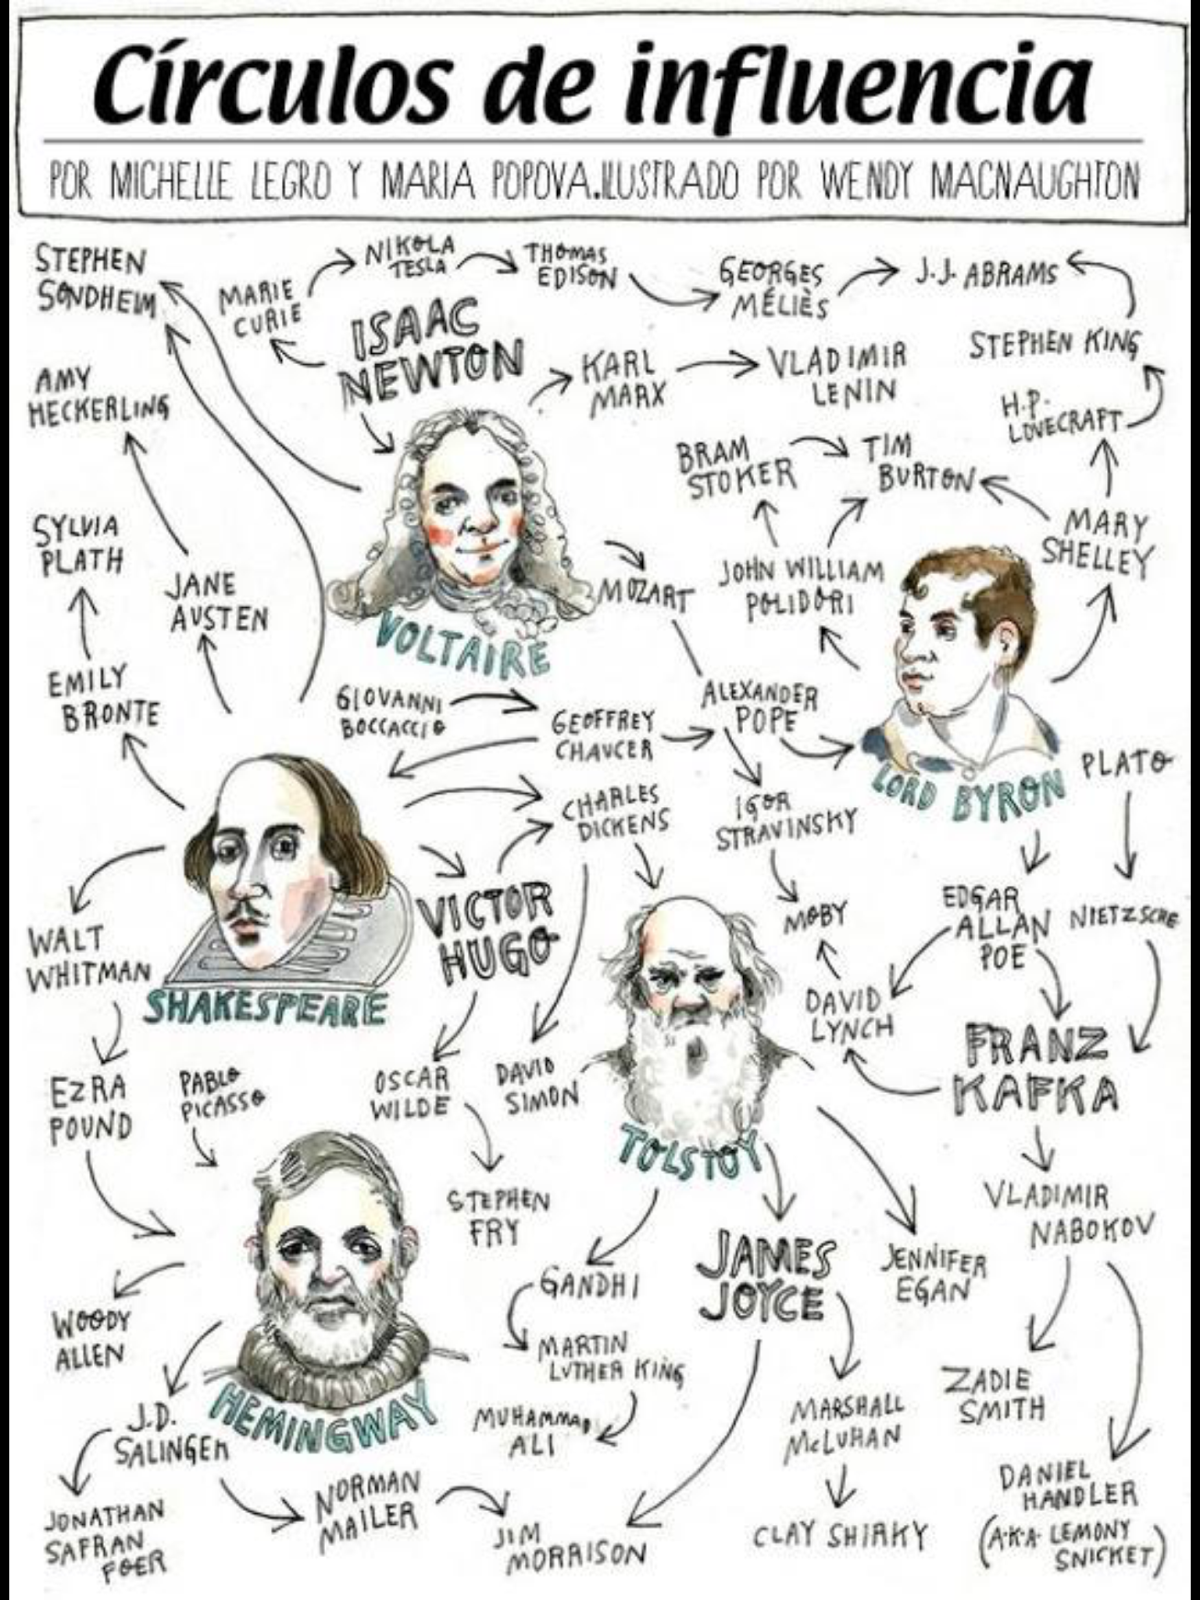 Círculos de influencia
POR MICHELLE LEGRO Y MARIA POPOVA.ILUSTRADO POR WENDY MACNAUGHTON
STEPHEN
SONDHEIM
MARIE
CURIE
NIKOLA
TESLA
THOMAS
EDISON
GEORGES
MÉLIÈS
J.J. ABRAMS
ISAAC
NEWTON
KARL
MARX
VLADIMIR
LENIN
STEPHEN KING
AMY
HECKERLING
H.P.
LOVECRAFT
BRAM
STOKER
TIM
BURTON
SYLVIA
PLATH
MARY
SHELLEY
JANE
AUSTEN
MOZART
JOHN WILLIAM
POLIDORI
VOLTAIRE
EMILY
BRONTE
GIOVANNI
BOCCACCIO
GEOFFREY
CHAUCER
ALEXANDER
POPE
LORD BYRON
PLATO
CHARLES
DICKENS
IGOR
STRAVINSKY
VICTOR
HUGO
MOBY
EDGAR
ALLAN
POE
NIETZSCHE
WALT
WHITMAN
SHAKESPEARE
DAVID
LYNCH
FRANZ
KAFKA
EZRA
POUND
PABLO
PICASSO
OSCAR
WILDE
DAVID
SIMON
TOLSTOY
STEPHEN
FRY
VLADIMIR
NABOKOV
GANDHI
JAMES
JOYCE
JENNIFER
EGAN
WOODY
ALLEN
MARTIN
LUTHER KING
HEMINGWAY
ZADIE
SMITH
J.D.
SALINGER
MUHAMMAD
ALI
MARSHALL
McLUHAN
JONATHAN
SAFRAN
FOER
NORMAN
MAILER
JIM
MORRISON
CLAY SHIRKY
DANIEL
HANDLER
(A.K.A. LEMONY
SNICKET)